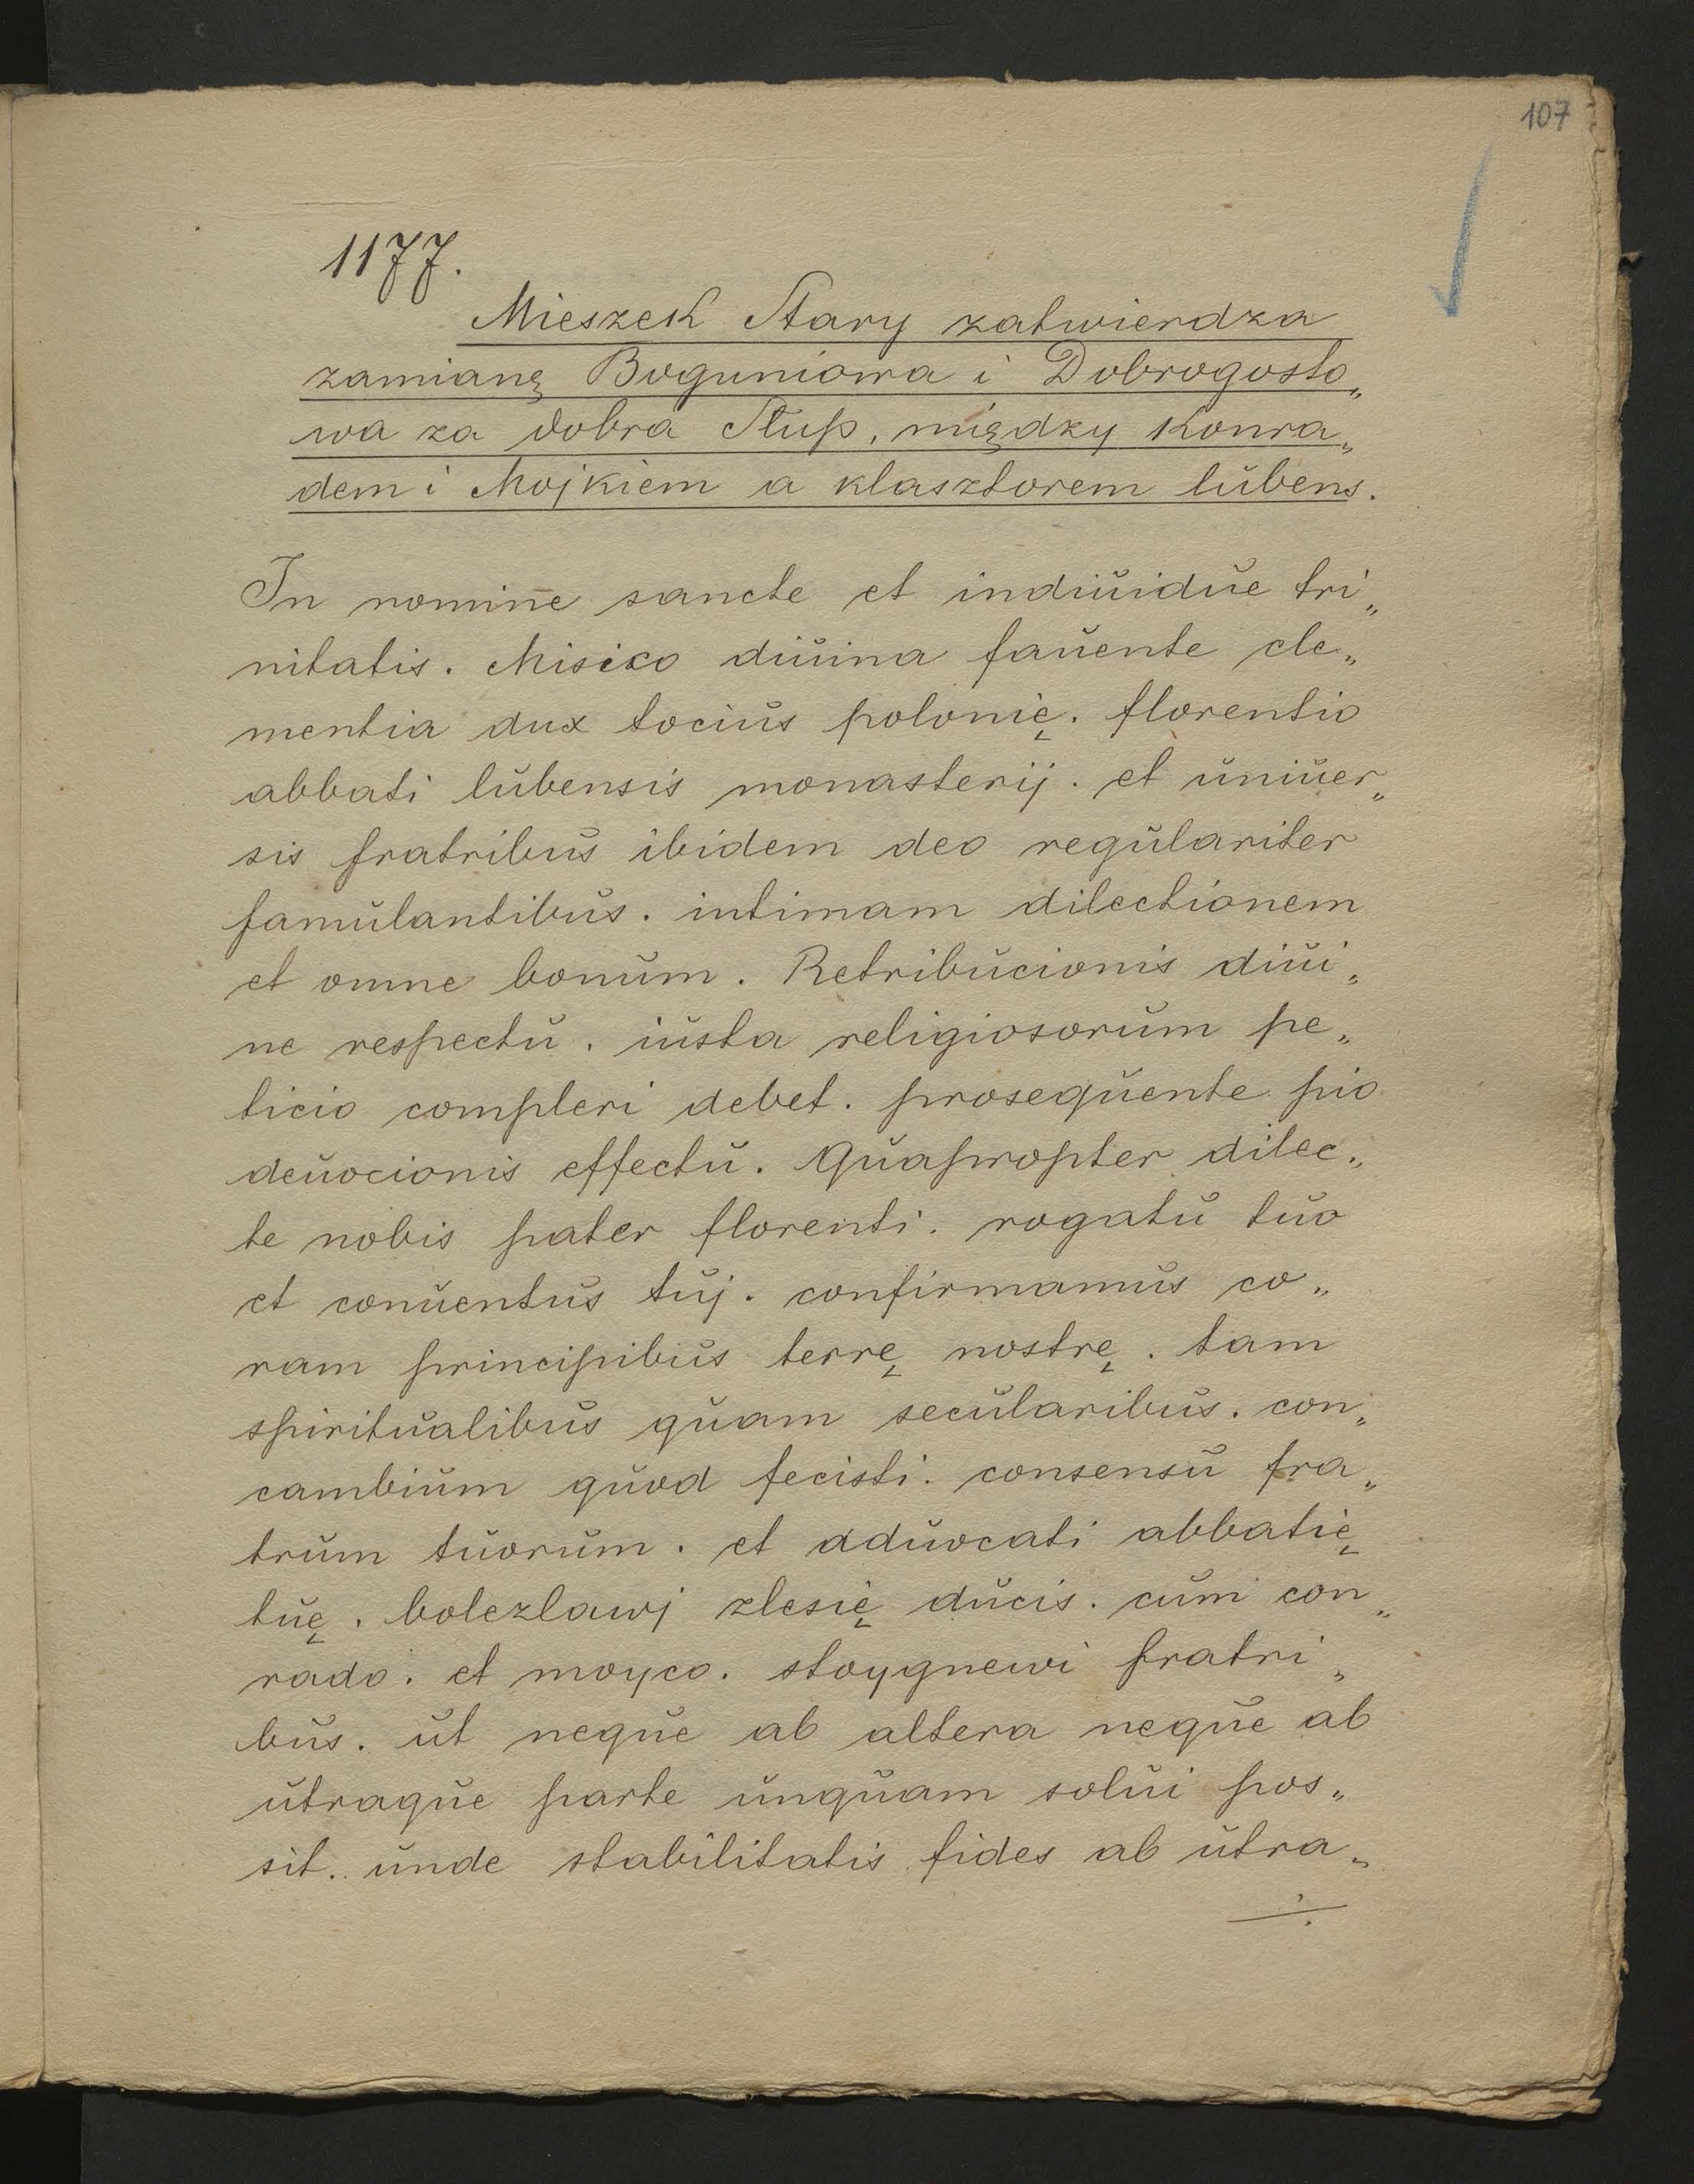 107
1177.
Mieszek Stary zatwierdza
zamianę Boguniowa i Dobrogosto„
wa za dobra Słup, między Konra„
dem i Mojkiem a klasztorem lubens.
In nomine sancte et indiuidue tri„
nitatis. Misico diuina fauente cle„
mentia dux tocius polonię. florentio
abbati lubensis monasterij. et uniuer„
sis fratribus ibidem deo regulariter
famulantibus. intimam dilectionem
et omne bonum. Retribucionis diui„
ne respectu. iusta religiosorum pe„
ticio compleri debet. prosequente pio
deuocionis effectu. Quapropter dilec„
te nobis pater florenti. rogatu tuo
et conuentus tuj. confirmamus co„
ram principibus terrę nostrę. tam
spiritualibus quam secularibus. con„
cambium quod fecisti. consensu fra„
trum tuorum. et aduocati abbatię
tuę. bolezlawj zlesię ducis. cum con„
rado. et moyco. stoygnewi fratri„
bus. ut neque ab altera neque ab
utraque parte unquam solui pos„
sit. unde stabilitatis fides ab utra„